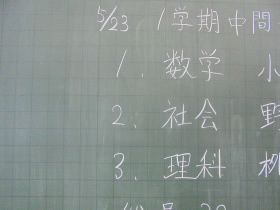 5/23 1学期中間
1. 数学 小
2. 社会 野
3. 理科